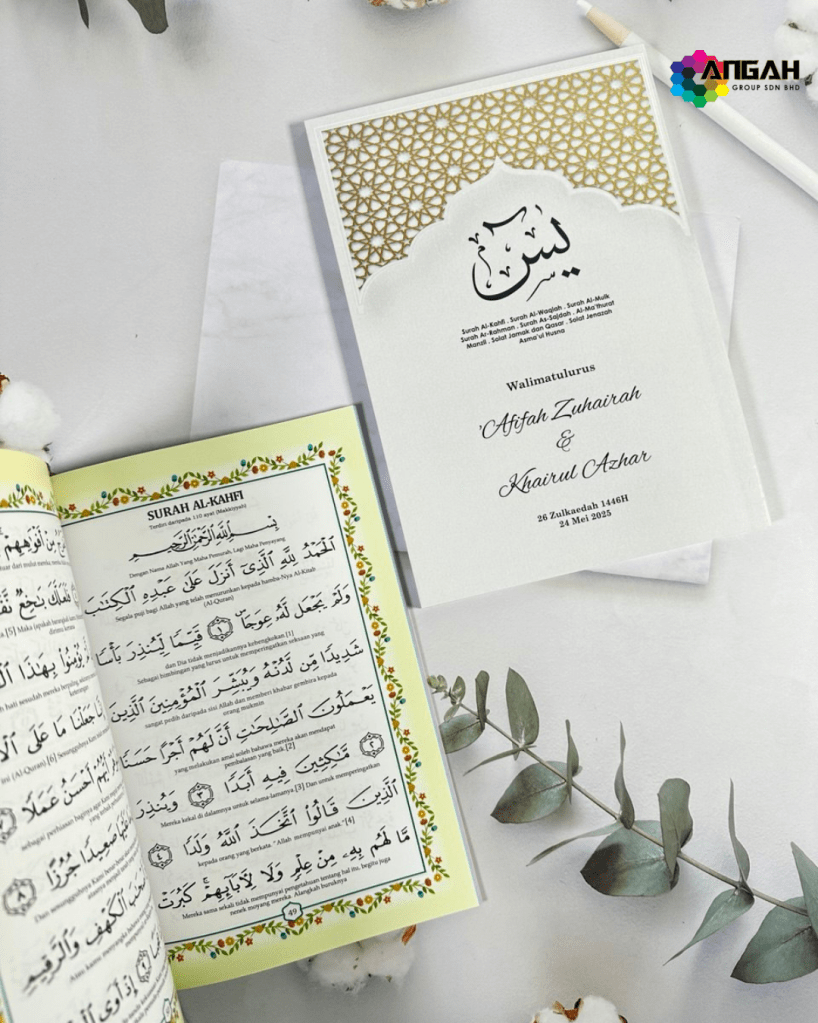 ANGAH
GROUP SDN BHD
يس
Surah Al-Kahfi . Surah Al-Waqiah . Surah Al-Mulk
Surah Ar-Rahman . Surah As-Sajdah . Al-Ma'thurat
Manzil . Solat Jamak dan Qasar . Solat Jenazah
Asma'ul Husna
Walimatulurus
'Afifah Zuhairah
&
Khairul Azhar
26 Zulkaedah 1446H
24 Mei 2025
SURAH AL-KAHFI
Terdiri daripada 110 ayat (Makkiyyah)
بِسْمِ اللَّهِ الرَّحْمَٰنِ الرَّحِيمِ
Dengan Nama Allah Yang Maha Pemurah, Lagi Maha Penyayang
الْحَمْدُ لِلَّهِ الَّذِي أَنْزَلَ عَلَىٰ عَبْدِهِ الْكِتَابَ
Segala puji bagi Allah yang telah menurunkan kepada hamba-Nya Al-Kitab
(Al-Quran)
وَلَمْ يَجْعَلْ لَهُ عِوَجًا ۜ ١ قَيِّمًا لِيُنْذِرَ بَأْسًا
dan Dia tidak menjadikannya kebengkokan [1]
Sebagai bimbingan yang lurus untuk memperingatkan seksaan yang
شَدِيدًا مِنْ لَدُنْهُ وَيُبَشِّرَ الْمُؤْمِنِينَ الَّذِينَ
sangat pedih daripada sisi Allah dan memberi khabar gembira kepada
orang mukmin
يَعْمَلُونَ الصَّالِحَاتِ أَنَّ لَهُمْ أَجْرًا حَسَنًا
yang melakukan amal soleh bahawa mereka akan mendapat
pembalasan yang baik [2]
٢ مَاكِثِينَ فِيهِ أَبَدًا ٣ وَيُنْذِرَ
Mereka kekal di dalamnya untuk selama-lamanya.[3] Dan untuk memperingatkan
الَّذِينَ قَالُوا اتَّخَذَ اللَّهُ وَلَدًا ٤
kepada orang yang berkata. "Allah mempunyai anak."[4]
مَا لَهُمْ بِهِ مِنْ عِلْمٍ وَلَا لِآبَائِهِمْ ۚ كَبُرَتْ
Mereka sama sekali tidak mempunyai pengetahuan tentang hal itu, begitu juga
nenek moyang mereka. Alangkah buruknya
49